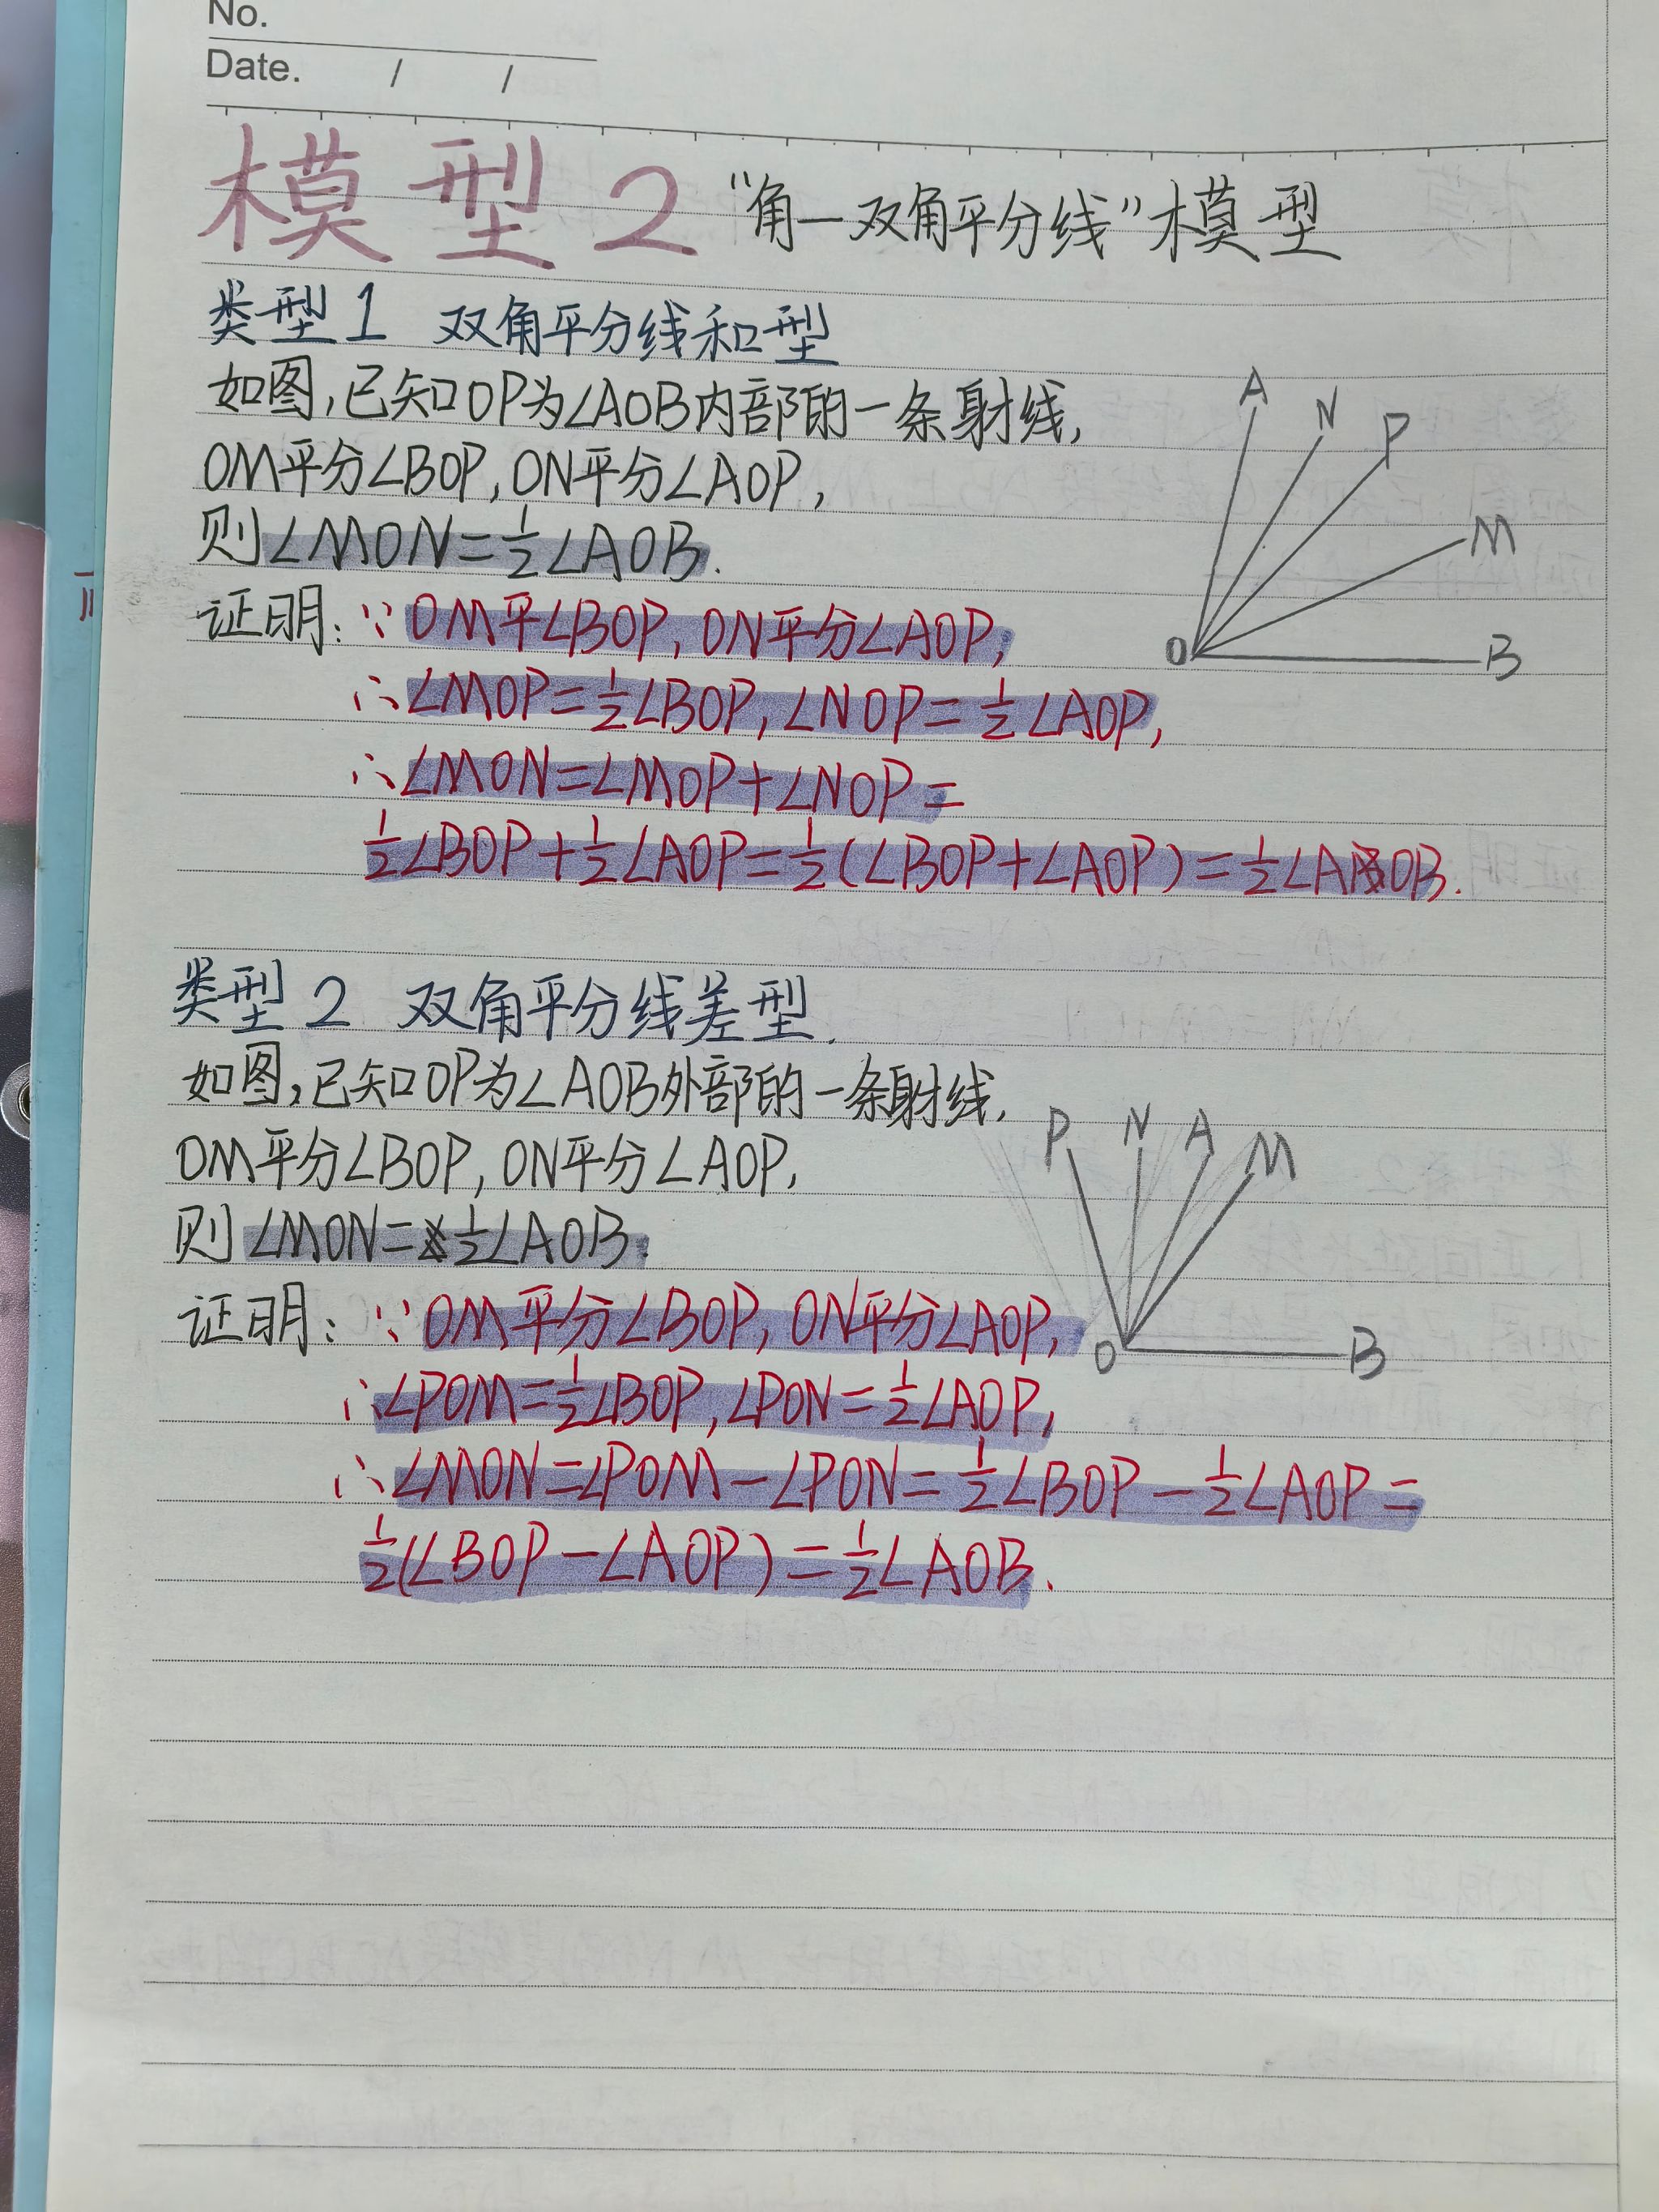 No.
Date. / /
模型2 “角一双角平分线”模型
类型1 双角平分线和型
如图,已知OP为∠AOB内部的一条射线,
OM平分∠BOP,ON平分∠AOP,
则∠MON=½∠AOB.
证明:∵OM平∠BOP,ON平分∠AOP,
∴∠MOP=½∠BOP,∠NOP=½∠AOP,
∴∠MON=∠MOP+∠NOP=
½∠BOP+½∠AOP=½(∠BOP+∠AOP)=½∠AOB.
A
N
P
M
O
B
类型2 双角平分线差型.
如图,已知OP为∠AOB外部的一条射线,
OM平分∠BOP,ON平分∠AOP,
则∠MON=½∠AOB.
证明:∵OM平分∠BOP,ON平分∠AOP,
∴∠POM=½∠BOP,∠PON=½∠AOP,
∴∠MON=∠POM-∠PON=½∠BOP-½∠AOP=
½(∠BOP-∠AOP)=½∠AOB.
P
N
A
M
O
B